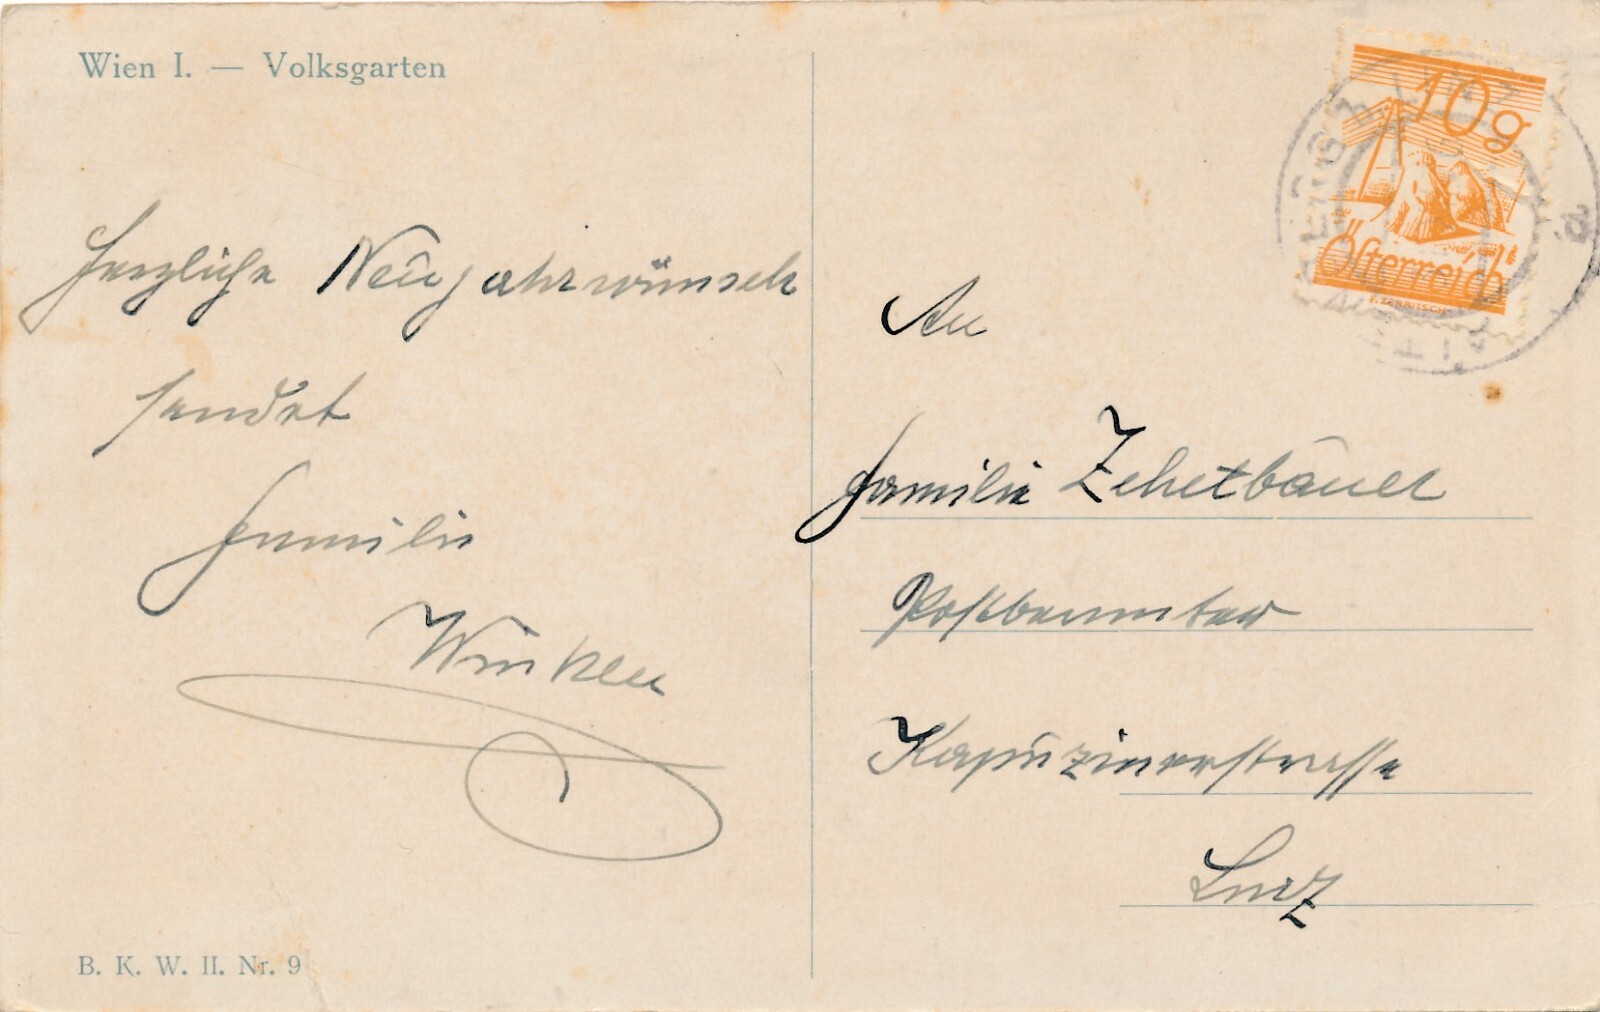 Wien I. — Volksgarten
Herzliche Neujahrwünsche
sendet
Familie
10 g
Österreich
An
Familie Zehetbauer
Postbeamter
Kapuzinerstrasse
Linz
B. K. W. II. Nr. 9